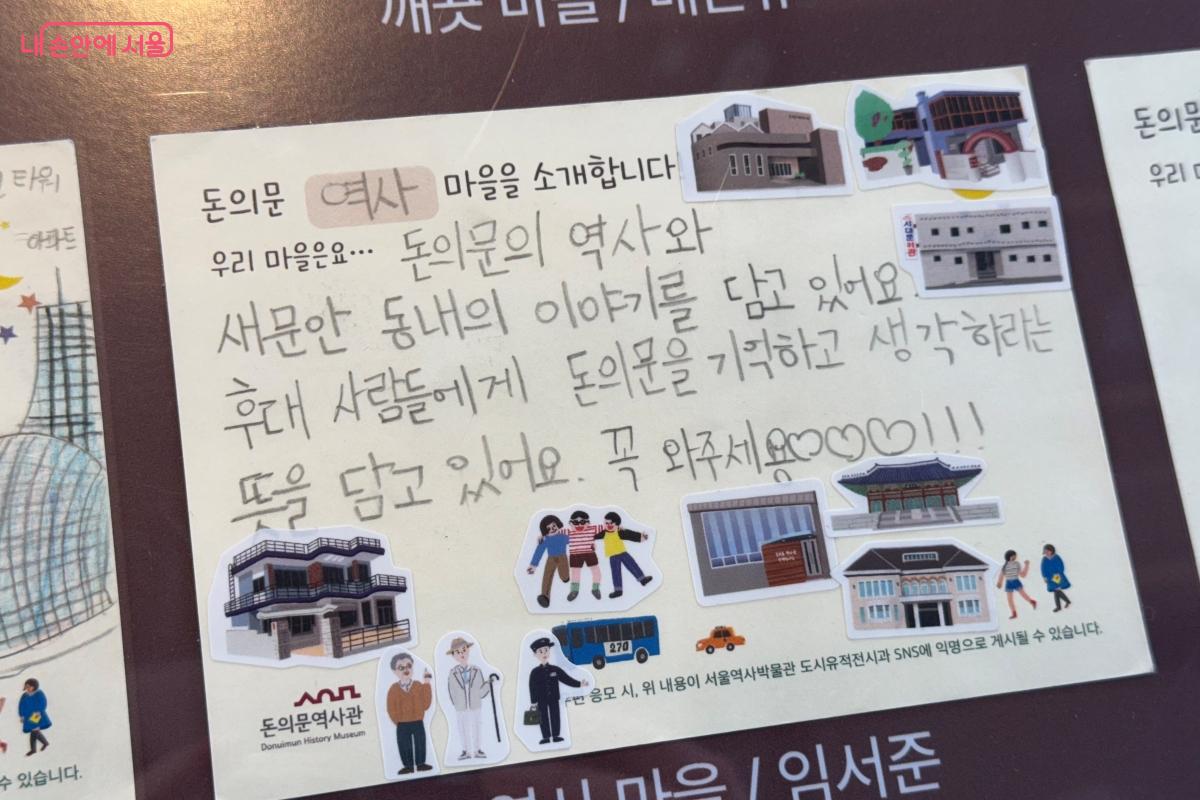 내 손안에 서울
깨곳 마을 /
타워
아파트
돈의문 역사 마을을 소개합니다
우리 마을은요... 돈의문의 역사와
새문안 동내의 이야기를 담고 있어요.
후대 사람들에게 돈의문을 기억하고 생각하라는
뜻을 담고 있어요. 꼭 와주세용♡♡♡!!!
서대문여관
270
응모 시, 위 내용이 서울역사박물관 도시유적전시과 SNS에 익명으로 게시될 수 있습니다.
돈의문역사관
Donuimun History Museum
수 있습니다.
역사 마을 / 임서준
돈의문
우리